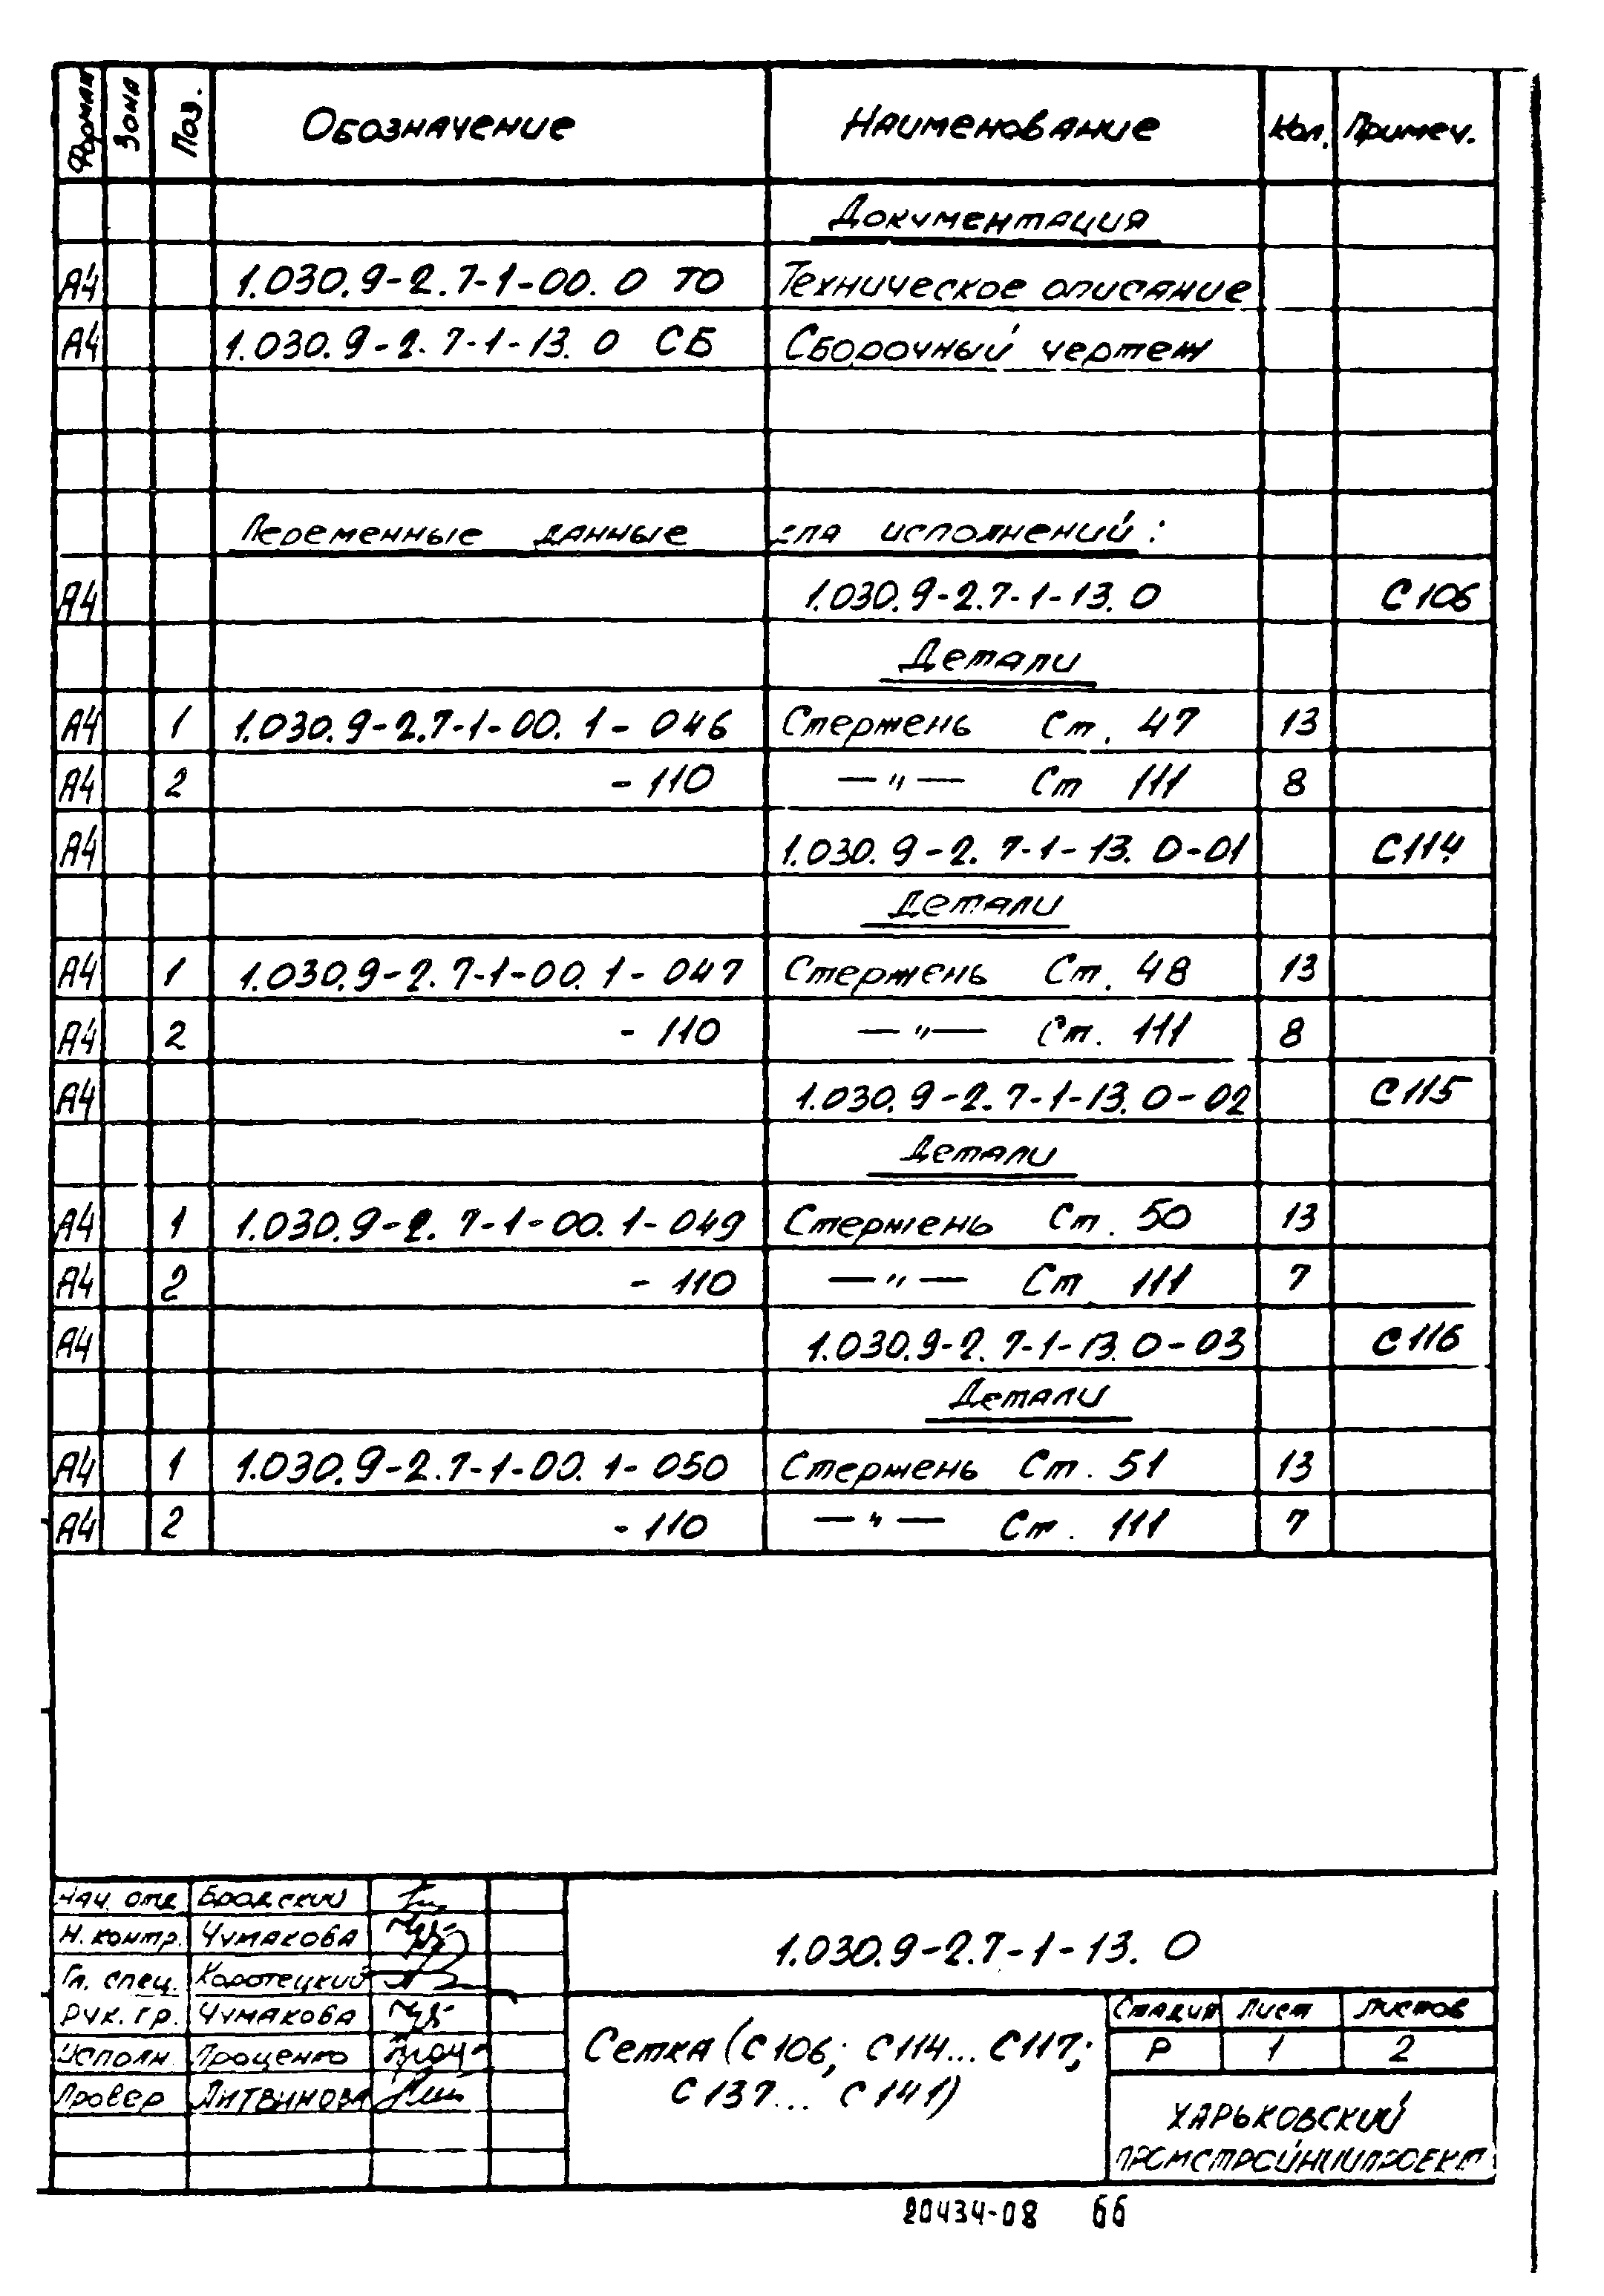 Формат Зона Поз. Обозначение Наименование Кол. Примеч.
Документация
А4 1.030.9-2.7-1-00.0 ТО Техническое описание
А4 1.030.9-2.7-1-13.0 СБ Сборочный чертеж
Переменные данные для исполнений:
А4 1.030.9-2.7-1-13.0 С106
Детали
А4 1 1.030.9-2.7-1-00.1-046 Стержень Ст. 47 13
А4 2 -110 —"— Ст 111 8
А4 1.030.9-2.7-1-13.0-01 С114
Детали
А4 1 1.030.9-2.7-1-00.1-047 Стержень Ст. 48 13
А4 2 -110 —"— Ст. 111 8
А4 1.030.9-2.7-1-13.0-02 С115
Детали
А4 1 1.030.9-2.7-1-00.1-049 Стержень Ст. 50 13
А4 2 -110 —"— Ст. 111 7
А4 1.030.9-2.7-1-13.0-03 С116
Детали
А4 1 1.030.9-2.7-1-00.1-050 Стержень Ст. 51 13
А4 2 -110 —"— Ст. 111 7
Нач. отд. Бродский
Н. контр. Чумакова
Гл. спец. Коротецкий
Рук. гр. Чумакова
Исполн. Проценко
Провер Литвинова
1.030.9-2.7-1-13.0
Сетка (С106; С114... С117;
С137... С141)
Стадия Лист Листов
Р 1 2
Харьковский
Промстройниипроект
20434-08 66